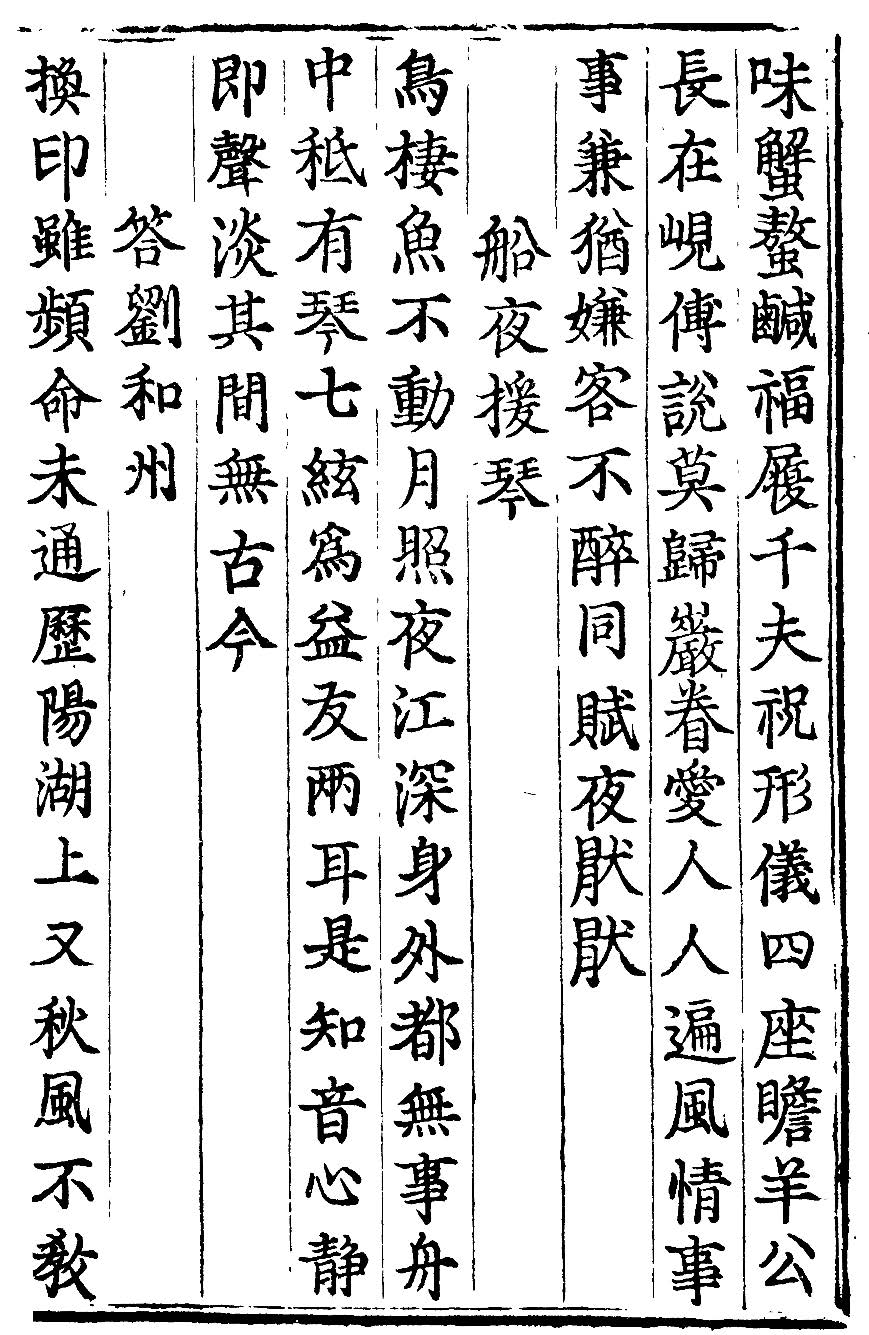 味蟹螯鹹福履千夫祝形儀四座瞻羊公
長在峴傅說莫歸巖眷愛人人遍風情事
事兼猶嫌客不醉同賦夜猒猒
船夜援琴
鳥棲魚不動月照夜江深身外都無事舟
中秪有琴七絃爲益友兩耳是知音心静
即聲淡其間無古今
答劉和州
換印雖頻命未通歷陽湖上又秋風不教